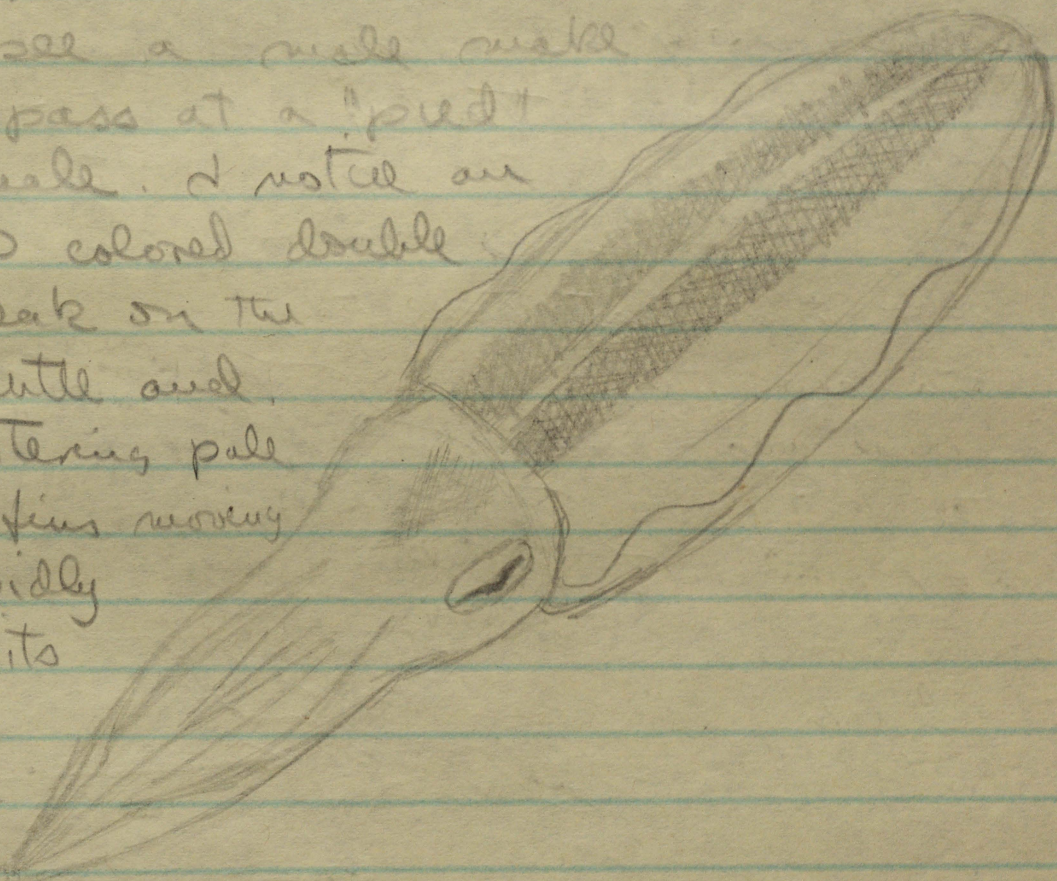 see a male make
pass at a "pied"
male. I notice an
colored double
eak on the
ntle and
tering pale
fins moving
idly
its